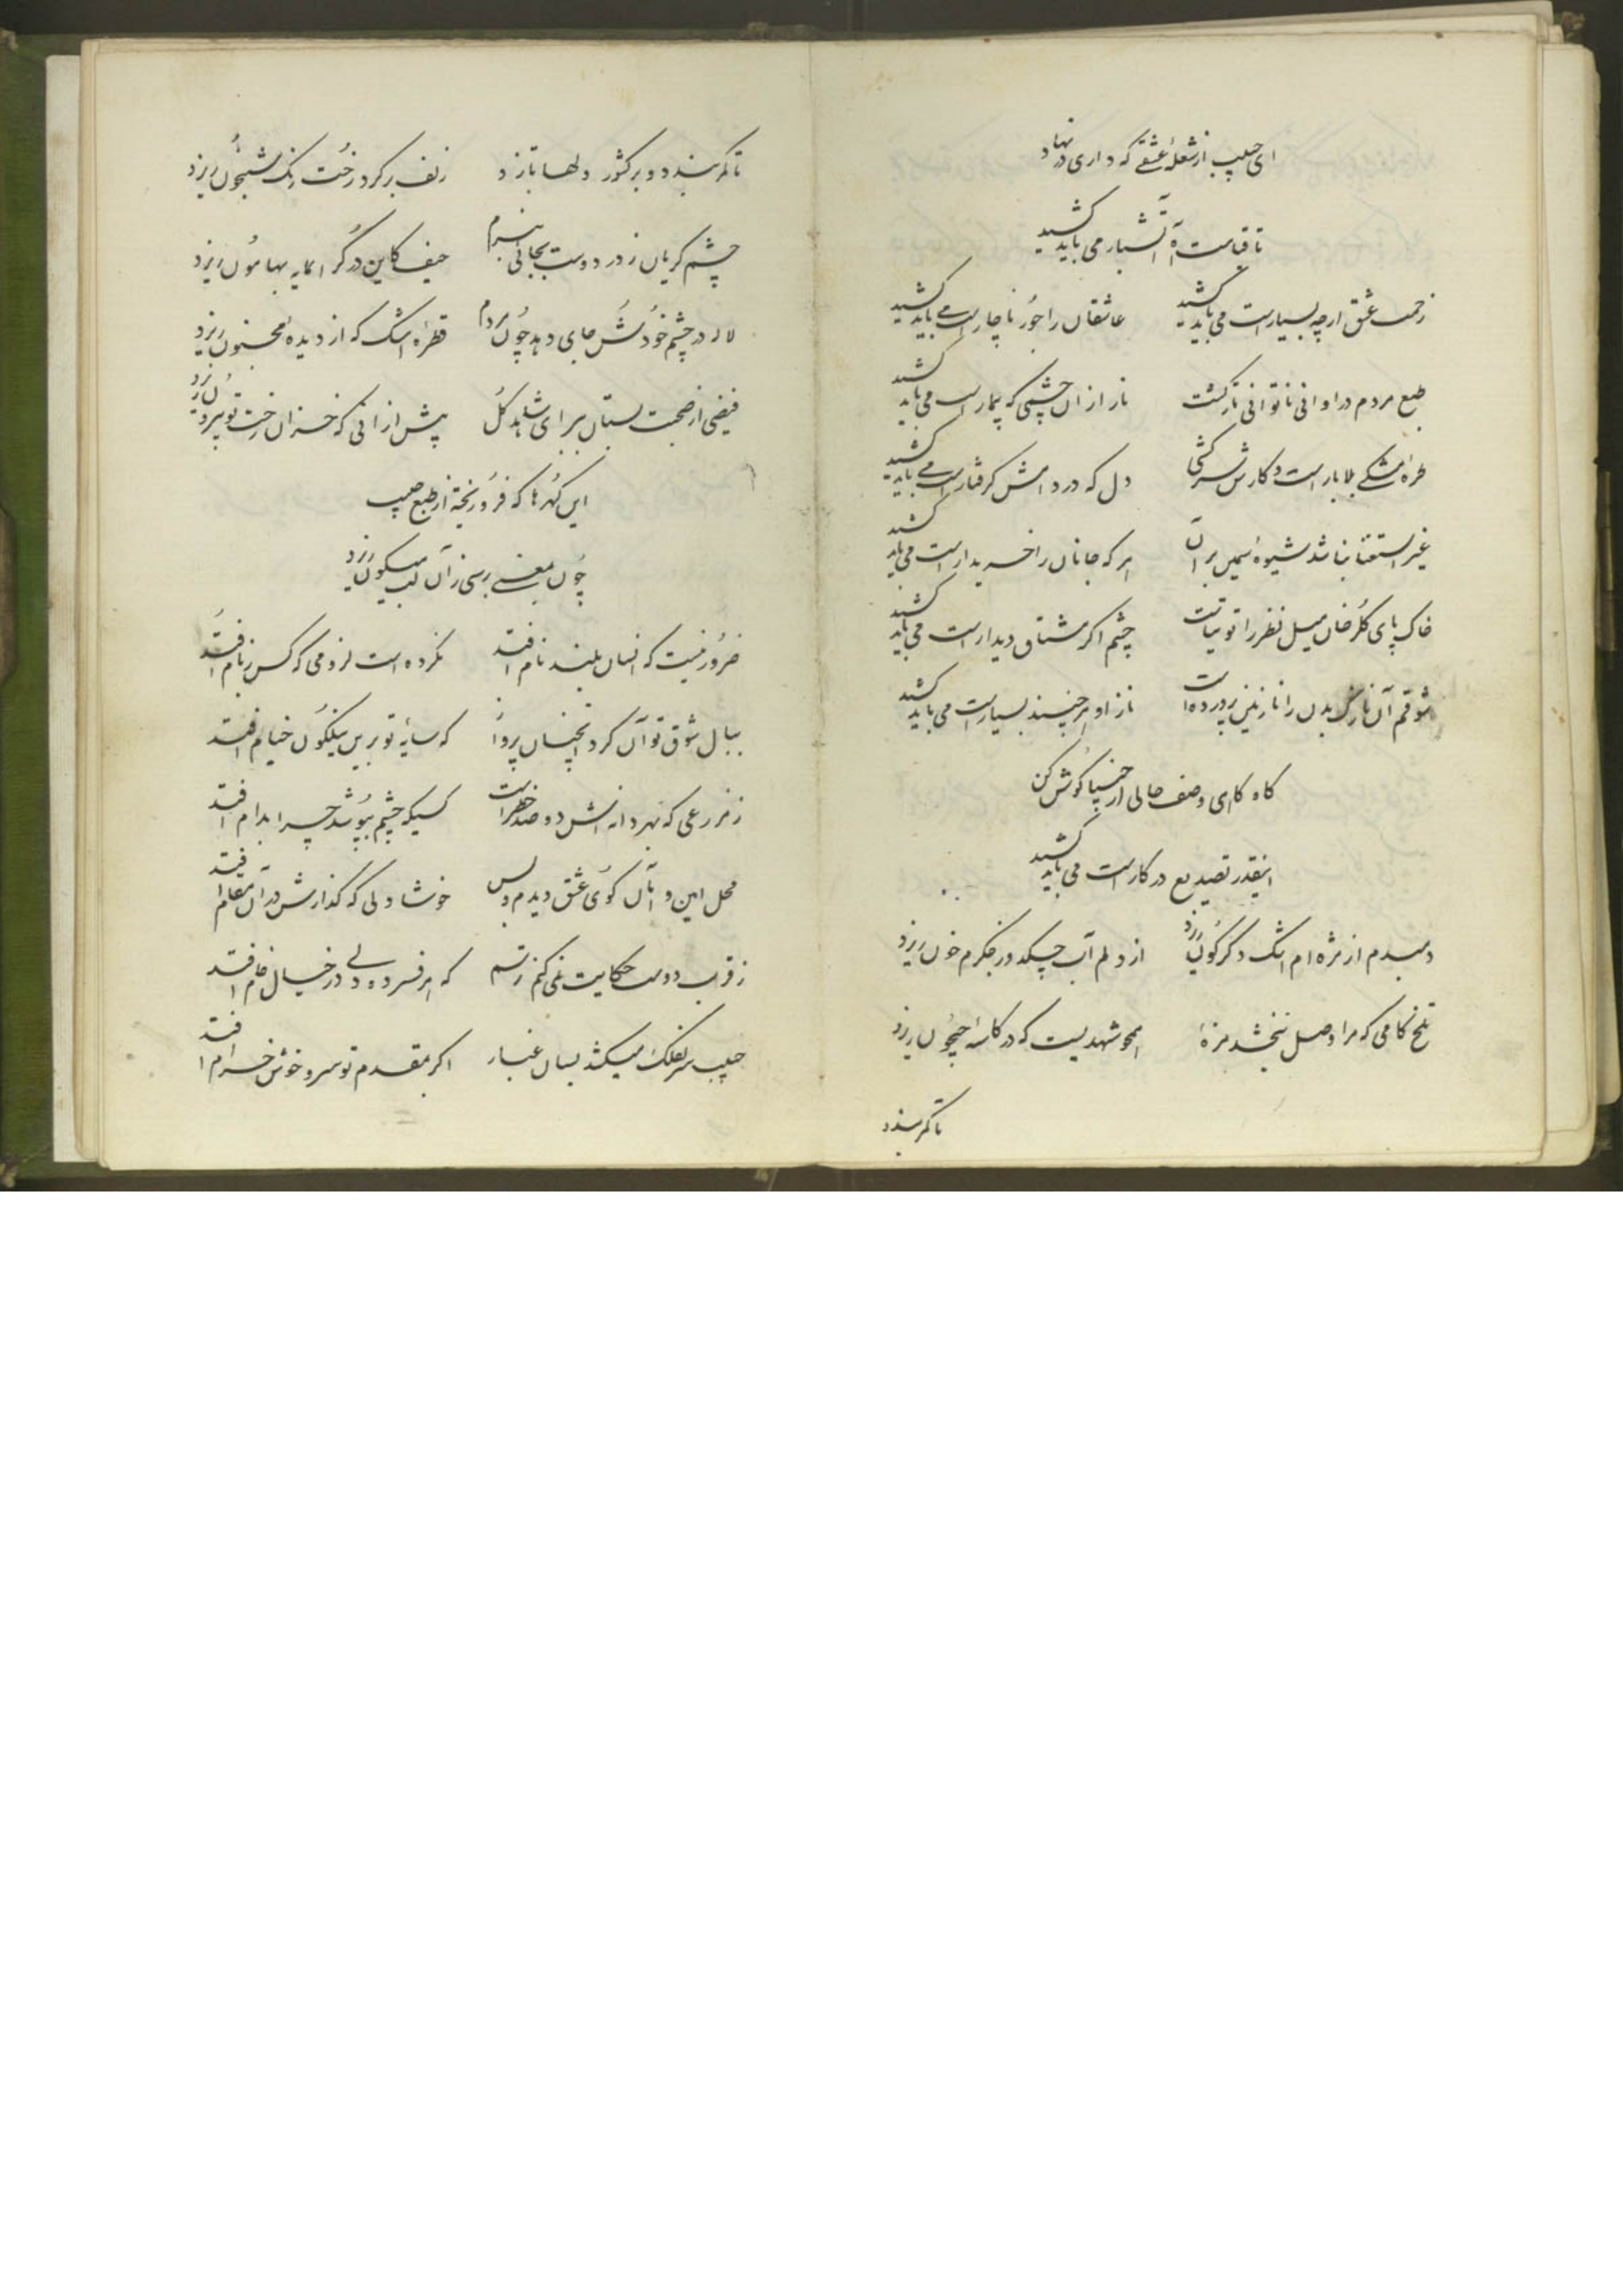 ای حبیب از شعلهٔ عشقے که داری در نهاد
تا قیامت آه آتشبار می باید کشید
زحمت عشق ارچه بسیار است می باید کشید عاشقان را جور ناچار است مے باید کشید
طبع مردم در اوانی ناتوانی نازکست ناز از آن چشمی که بیمار است می باید کشید
طرهٔ مشکے بلا بار است و کارش سرکشی دل که در دامش گرفتار است مے باید کشید
غیر استغنا نباشد شیوهٔ سیمین بران هر که جانان را خریدار است می باید کشید
خاک پای گلرخان میل نظر را توتیاست چشم اگر مشتاق دیدار است می باید کشید
شوقم آن نازک بدن را نازنین پرورده است ناز او هر چند بسیار است می باید کشید
گاه گاهی وصف حالی از حبیبا گوش کن
اینقدر تصدیع در کار است می باید کشید
دمبدم از مژه ام اشک دگرگون ریزد از دلم آب چکد ور جگرم خون ریزد
تلخ کامی که مرا وصل نبخشد مزهٔ همچو شهدیست که در کاسهٔ ریزد
تا کمر بندد
تا کمر بندد و بر کشور دلها تازد زلف بر گرد رخت رنگ شبیخون ریزد
چشم گریان ز در دوست بجائی نبرم حیف کاین در گرانمایه بهامون ریزد
لاله در چشم خودش جای دهد چون مردم قطرهٔ اشک که از دیدهٔ مجنون ریزد
فیضی از صحبت بستان ببر ای شاهد گل پیش از آنی که خزان رخت تو بیرون ریزد
این گهرها که فرو ریخته از طبع حبیب
چون بمعنے برسی زآن لب میگون ریزد
ضرور نیست که انسان بلند نام افتد نکرده است لزومی که کس ز نام افتد
ببال شوق توان کرد آنچنان پرواز که سایهٔ تو برین نیلگون خیام افتد
ز مزرعی که بهر دانه اش دو صد خطر است کسیکه چشم بپوشد چرا بدام افتد
محل این و آن کوی عشق دیدم و بس خوشا دلی که گذارش در آن مقام افتد
ز قرب دوست حکایت نمی کنم ترسم که هر فسرده دلے در خیال خام افتد
حبیب سر بفلک میکشد بسان غبار اگر بمقدم تو سرو خوش خرام افتد